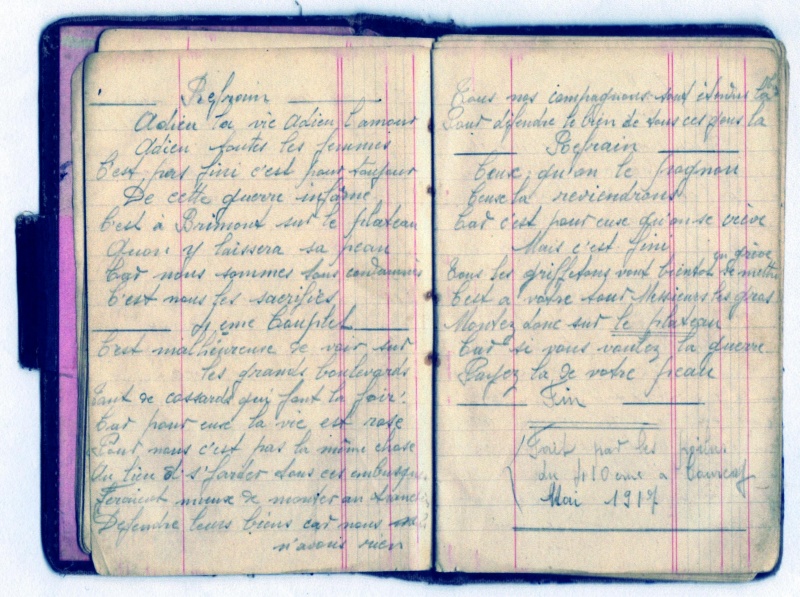 Refrain
Adieu la vie Adieu l'amour
Adieu toutes les femmes
C'est pas fini c'est pour toujour
De cette guerre infâme
C'est à Brimont sur le plateau
Quon y laissera sa peau
Car nous sommes tous condamnés
C'est nous les sacrifiés
4 eme Couplet
C'est malheureuse de voir sur
les grands boulevards
Tant de cossards qui font la foir
Car pour eux la vie est rose
Pour nous c'est pas la même chose
Au lieu de s'farder tous ces embusqués
Feraient mieux de monter au
Defendre leurs biens car nous
n'avons rien
Tous nos compagnons sont étendus la
Pour défendre le bien de tous ces gens la
Refrain
Ceux qu'on le pognon
Ceux la reviendrons
Car c'est pour eux qu'on se crève
Mais c'est fini
en grève
Tous les griffetons vont bientot se mettre
C'est a votre tour Messieurs les gros
Montez donc sur le plateau
Car si vous voulez la guerre
Payez la de votre peau
Fin
Fait par les poilus
du 410 eme a
Mai 1917